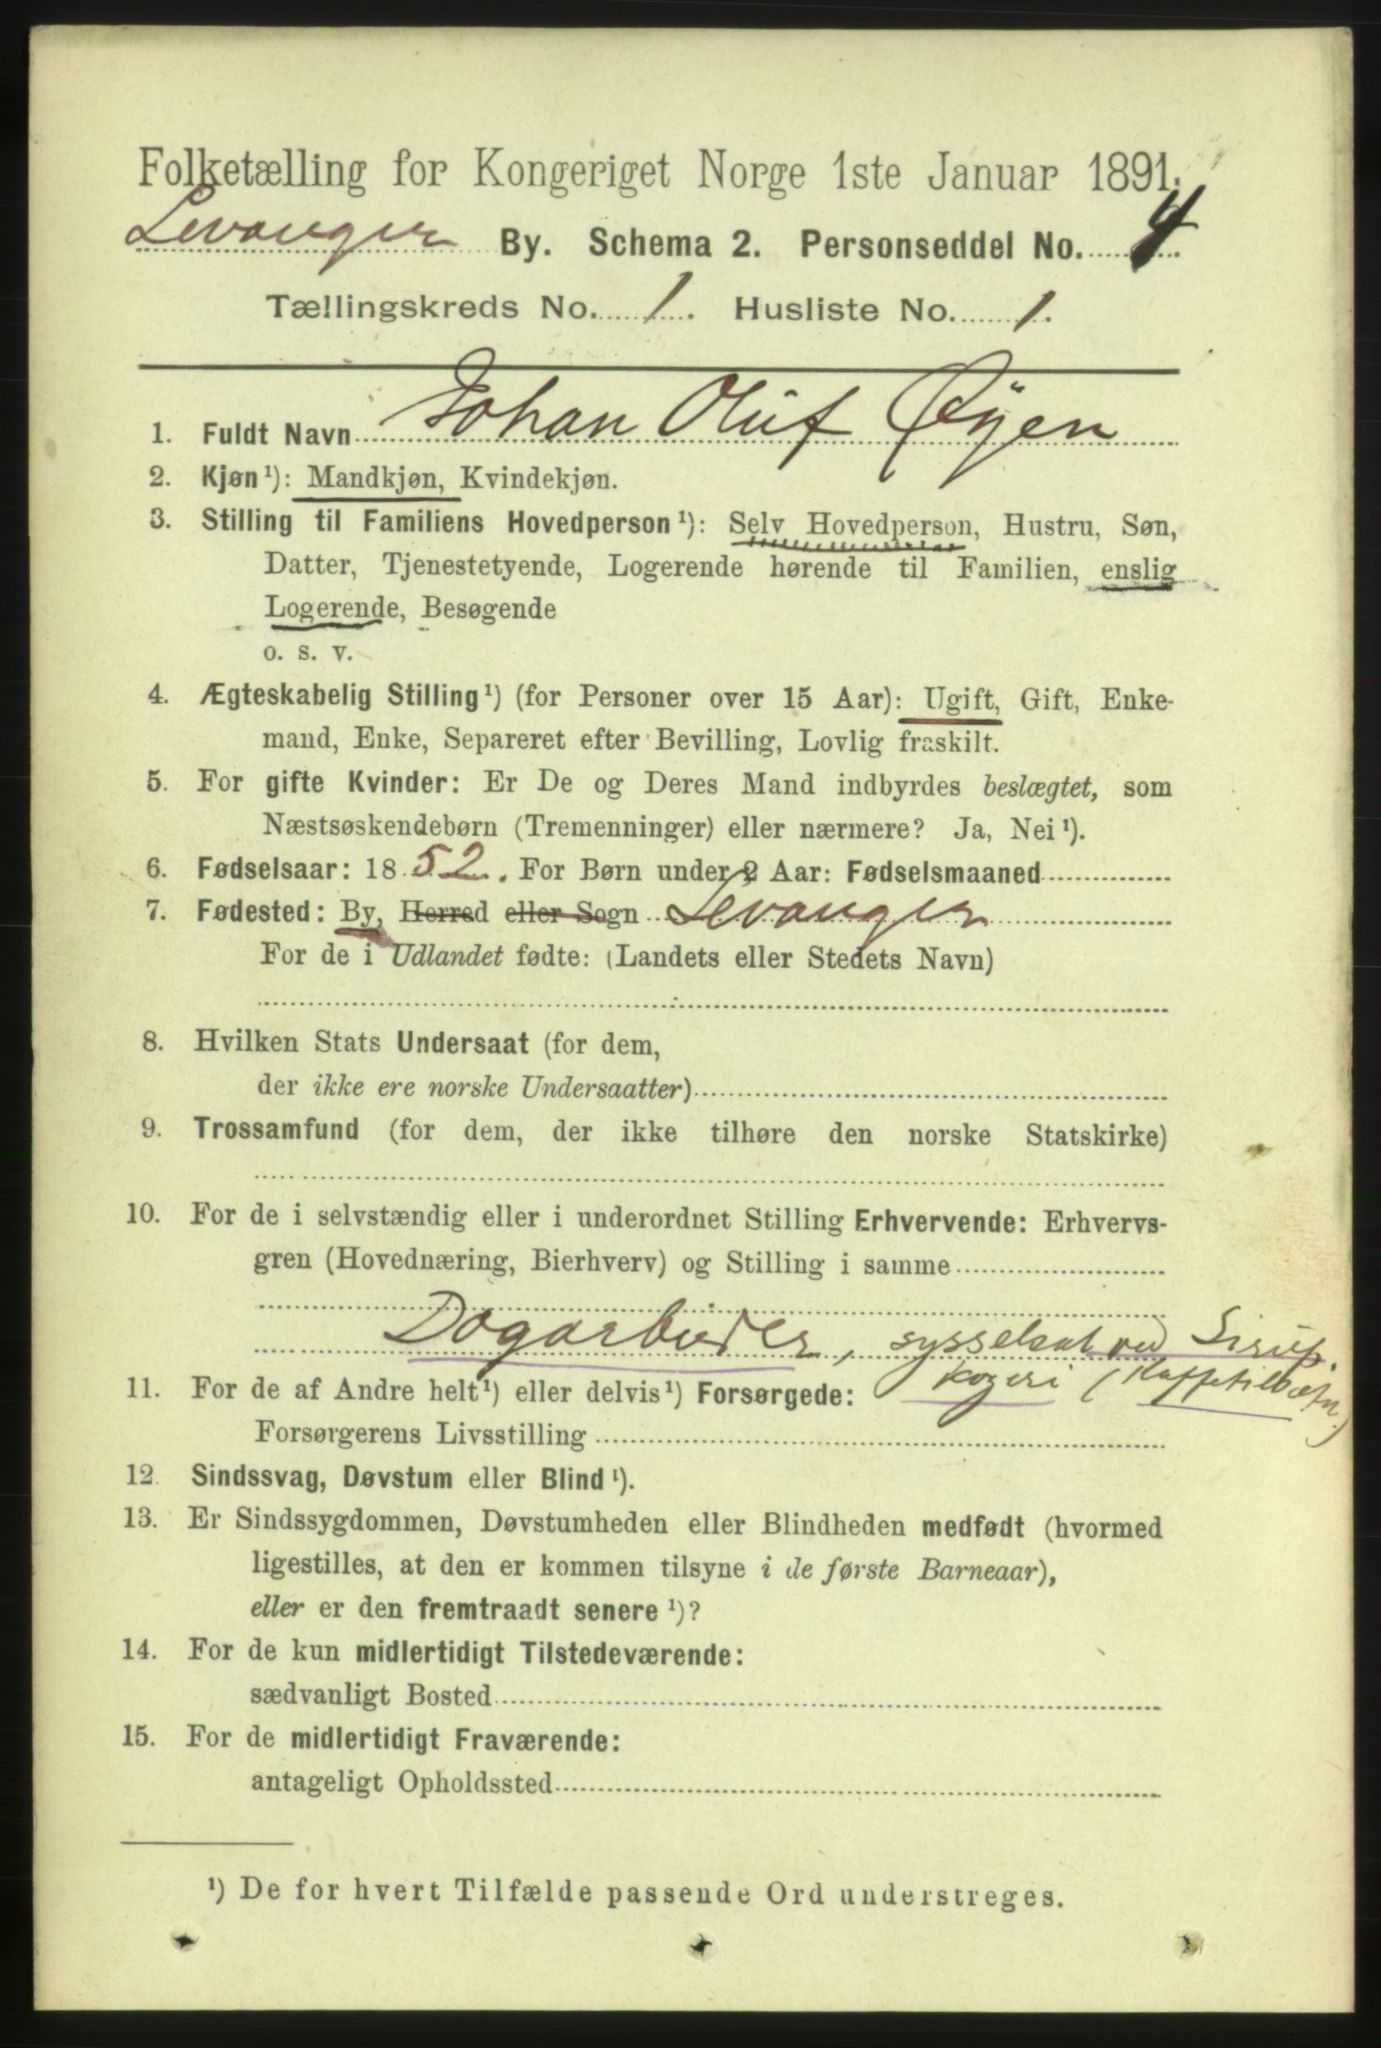 Folketælling for Kongeriget Norge 1ste Januar 1891.
Levanger By. Schema 2. Personseddel No. 4
Tællingskreds No. 1. Husliste No. 1.
1. Fuldt Navn Johan Oluf Øyen
2. Kjøn ¹): Mandkjøn, Kvindekjøn.
3. Stilling til Familiens Hovedperson ¹): Selv Hovedperson, Hustru, Søn,
Datter, Tjenestetyende, Logerende hørende til Familien, enslig
Logerende, Besøgende
o. s. v.
4. Ægteskabelig Stilling ¹) (for Personer over 15 Aar): Ugift, Gift, Enke-
mand, Enke, Separeret efter Bevilling, Lovlig fraskilt.
5. For gifte Kvinder: Er De og Deres Mand indbyrdes beslægtet, som
Næstsøskendebørn (Tremenninger) eller nærmere? Ja, Nei ¹).
6. Fødselsaar: 1852. For Børn under 2 Aar: Fødselsmaaned
7. Fødested: By, Herred eller Sogn Levanger
For de i Udlandet fødte: (Landets eller Stedets Navn)
8. Hvilken Stats Undersaat (for dem,
der ikke ere norske Undersaatter)
9. Trossamfund (for dem, der ikke tilhøre den norske Statskirke)
10. For de i selvstændig eller i underordnet Stilling Erhvervende: Erhvervs-
gren (Hovednæring, Bierhverv) og Stilling i samme
Dagarbeider, sysselsat ved Sirup.
kogeri (Kaffetilbefn.)
11. For de af Andre helt ¹) eller delvis ¹) Forsørgede:
Forsørgerens Livsstilling
12. Sindssvag, Døvstum eller Blind ¹).
13. Er Sindssygdommen, Døvstumheden eller Blindheden medfødt (hvormed
ligestilles, at den er kommen tilsyne i de første Barneaar),
eller er den fremtraadt senere ¹)?
14. For de kun midlertidigt Tilstedeværende:
sædvanligt Bosted
15. For de midlertidigt Fraværende:
antageligt Opholdssted
¹) De for hvert Tilfælde passende Ord understreges.